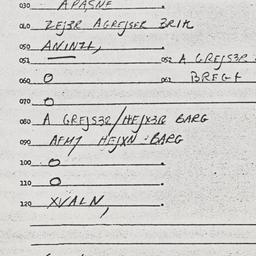 030 APASNE
040 ZEJ3R AGREJSER 3RIK
050 ANINZL,
051 052 A GREJS3R
060 O 062 BREGA
070 O
080 A GREJS3R/HEJX3R BARG
090 AFM7 HEJXN-BARG
100 O
110 O
120 XVALN,